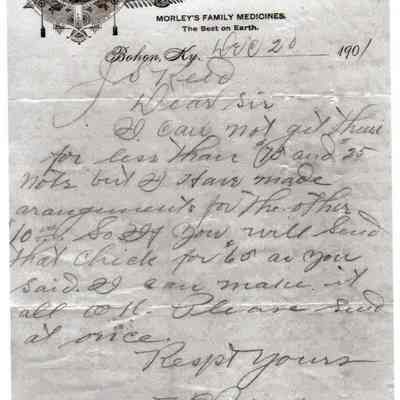 MORLEY'S FAMILY MEDICINES.
The Best on Earth.
Bohon, Ky. Dec 20 1901
J S Reed
Dear Sir
I can not get them
for less than $75 and $25
note but I have made
arangements for the other
10 So If you will send
that check for $65 as you
said. I can make it
all O.K. Please send
at once.
Respt Yours